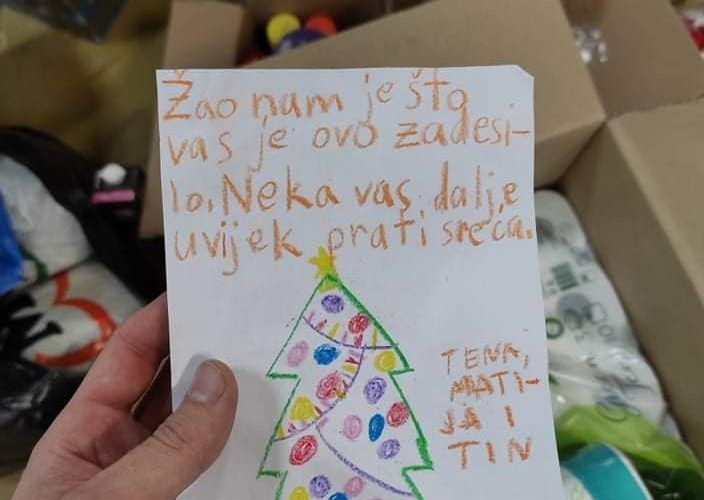 Žao nam je što
vas je ovo zadesi-
lo. Neka vas dalje
uvijek prati sreća.
TENA,
MATI-
JA I
TIN